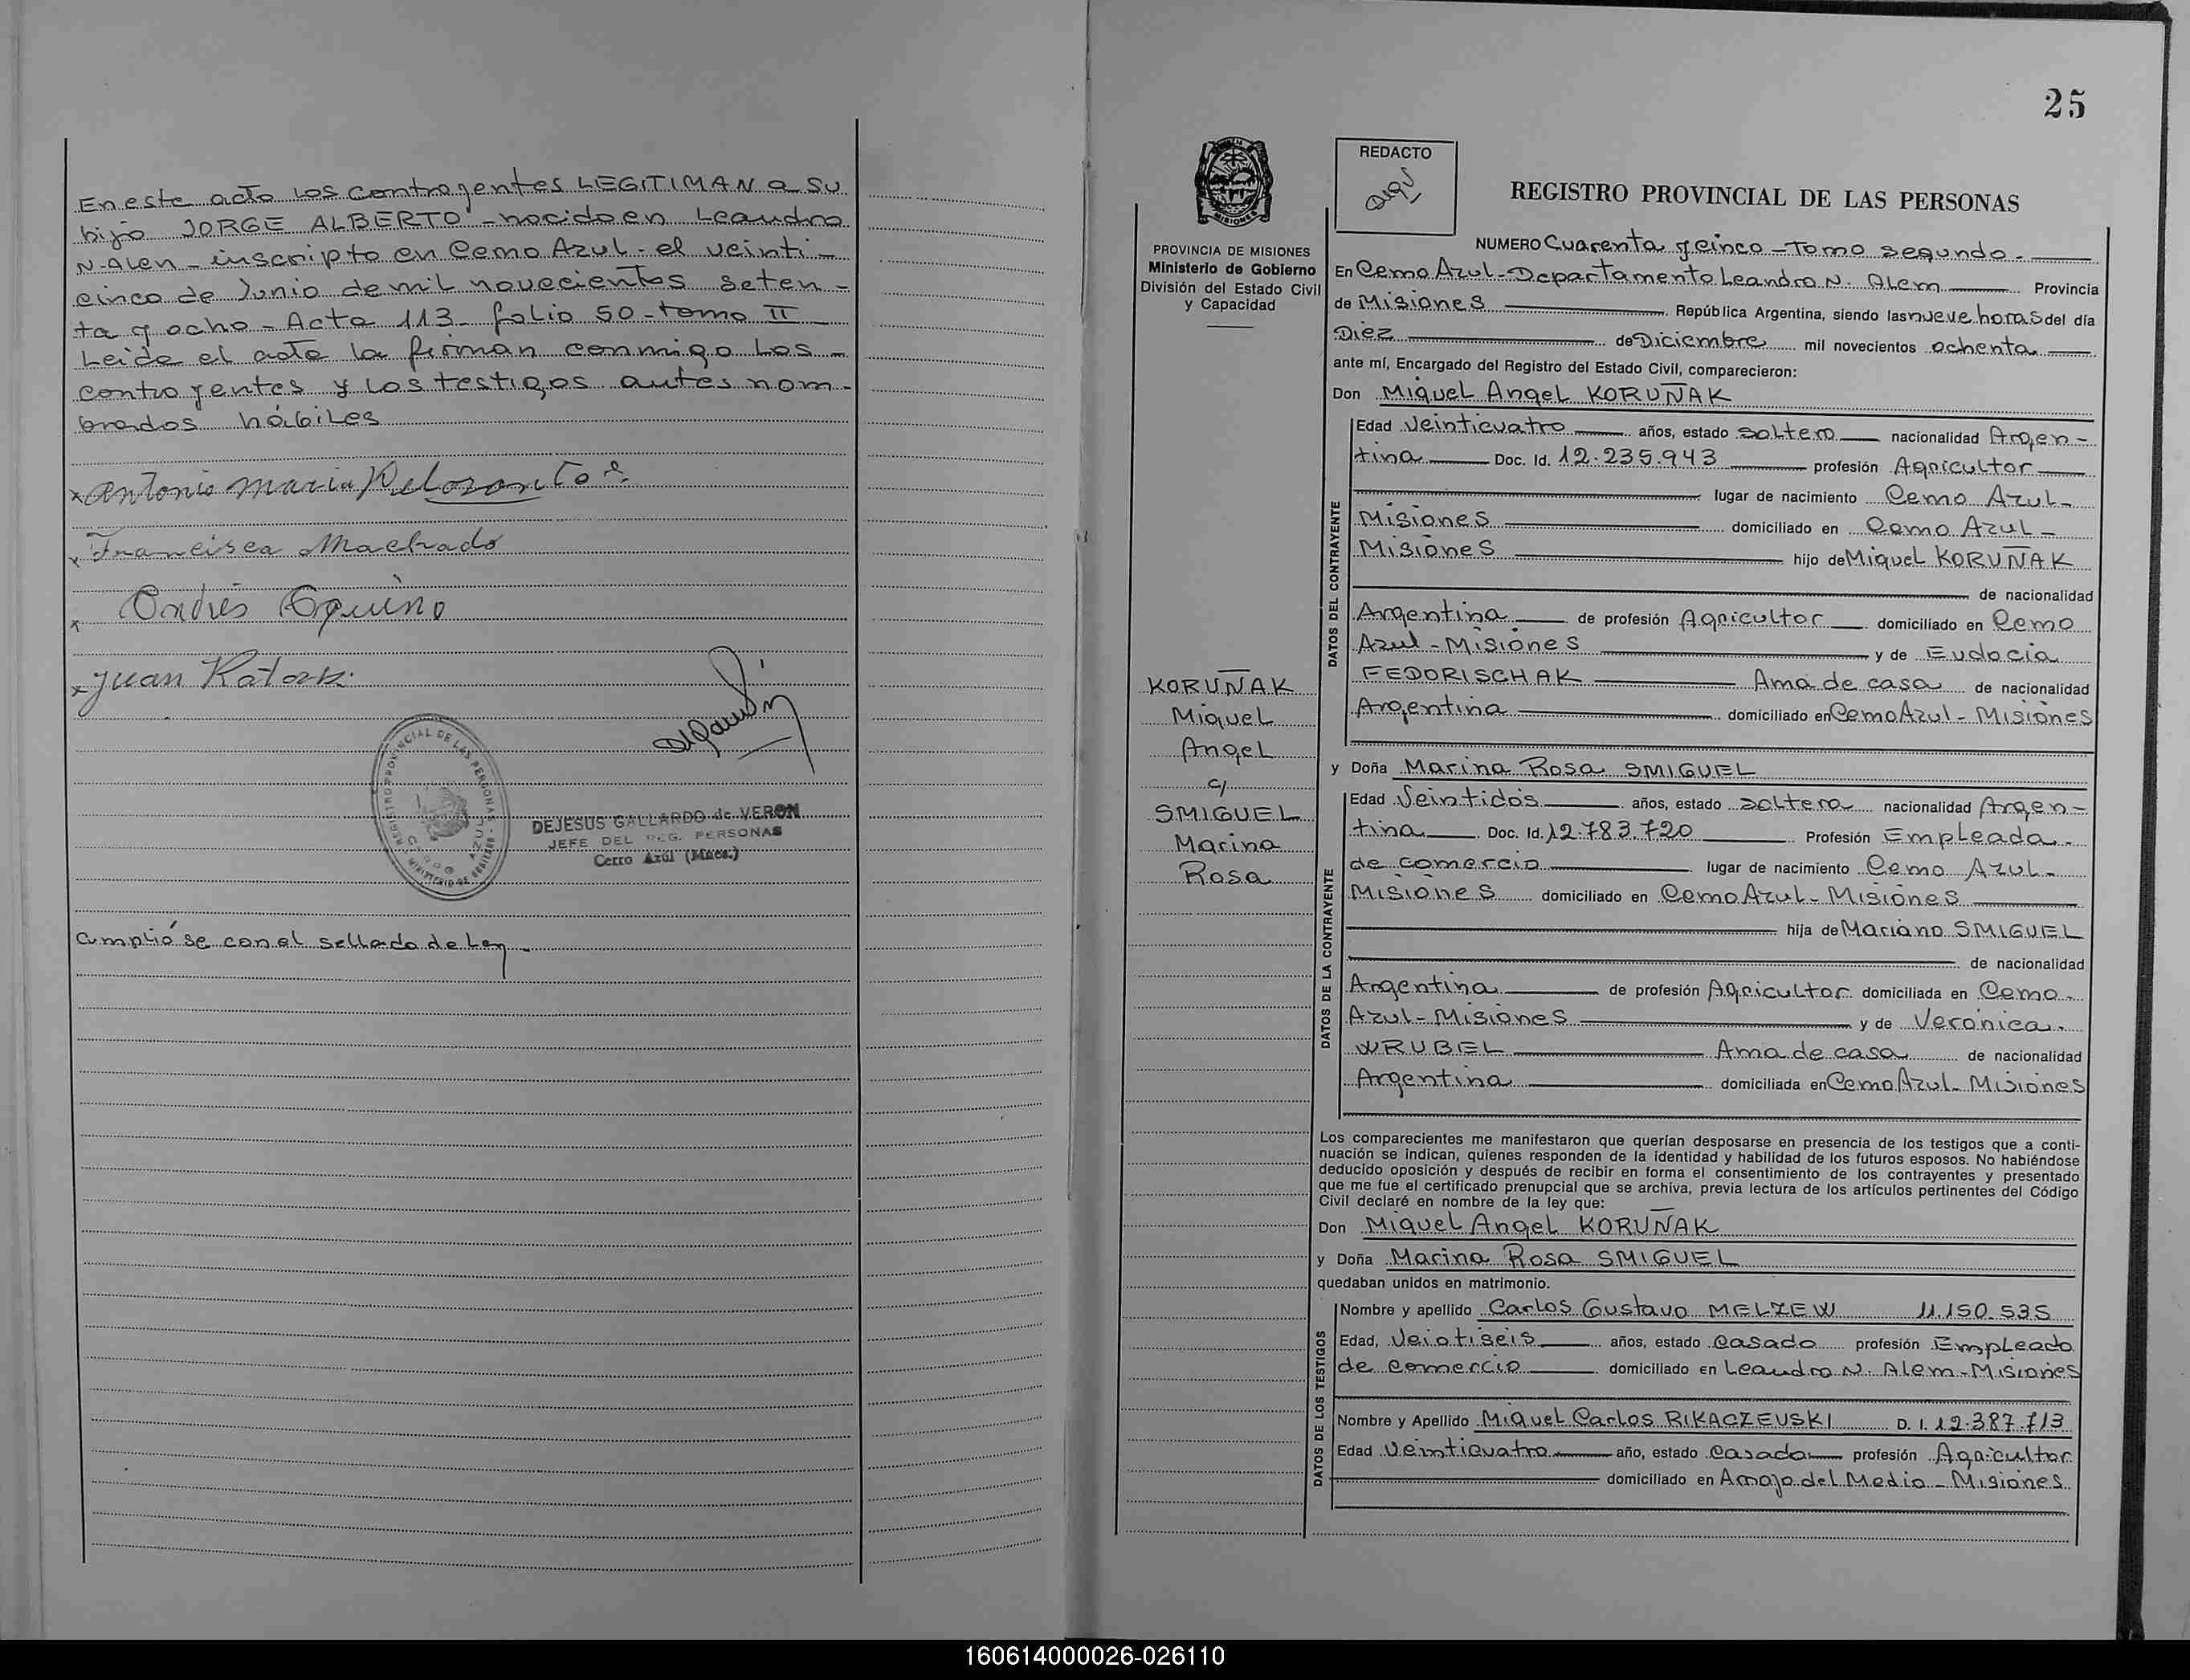 En este acto los contrayentes LEGITIMAN a su
hijo JORGE ALBERTO - nacido en Leandro
N. Alen - inscripto en Cerro Azul - el veinti -
cinco de Junio de mil novecientos seten -
ta y ocho - Acta 113 - folio 50 - tomo II
Leida el acta la firman conmigo los -
contrayentes y los testigos antes nom -
brados hábiles
x Antonio Maria
x Francisca Machado
x Andrés Aquino
x Juan
REGISTRO PROVINCIAL DE LAS PERSONAS - MINISTERIO DE GOBIERNO -
CERRO AZUL
DEJESUS GALLARDO de VERON
JEFE DEL REG. PERSONAS
Cerro Azúl (Mnes.)
Cumplió se con el sellado de Ley -
25
PROVINCIA DE MISIONES
Ministerio de Gobierno
División del Estado Civil
y Capacidad
MISIONES
REDACTO
REGISTRO PROVINCIAL DE LAS PERSONAS
NUMERO Cuarenta y cinco - Tomo segundo -
En Cerro Azul - Departamento Leandro N. Alem Provincia
de Misiones República Argentina, siendo las nueve horas del día
Diez de Diciembre mil novecientos ochenta
ante mí, Encargado del Registro del Estado Civil, comparecieron:
Don Miguel Angel KORUÑAK
DATOS DEL CONTRAYENTE
Edad Veinticuatro años, estado soltero nacionalidad Argen -
tina Doc. Id. 12.235.943 profesión Agricultor
lugar de nacimiento Cerro Azul -
Misiones domiciliado en Cerro Azul -
Misiones hijo de Miguel KORUÑAK
de nacionalidad
Argentina de profesión Agricultor domiciliado en Cerro
Azul - Misiones y de Eudocia
FEDORISCHAK Ama de casa de nacionalidad
Argentina domiciliado en Cerro Azul - Misiones
KORUÑAK
Miguel
Angel
c/
SMIGUEL
Marina
Rosa
y Doña Marina Rosa SMIGUEL
DATOS DE LA CONTRAYENTE
Edad Veintidós años, estado soltera nacionalidad Argen -
tina Doc. Id. 12.783.720 Profesión Empleada -
de comercio lugar de nacimiento Cerro Azul -
Misiones domiciliado en Cerro Azul - Misiones
hija de Mariano SMIGUEL
de nacionalidad
Argentina de profesión Agricultor domiciliada en Cerro -
Azul - Misiones y de Verónica
WRUBEL Ama de casa de nacionalidad
Argentina domiciliada en Cerro Azul - Misiones
Los comparecientes me manifestaron que querían desposarse en presencia de los testigos que a conti-
nuación se indican, quienes responden de la identidad y habilidad de los futuros esposos. No habiéndose
deducido oposición y después de recibir en forma el consentimiento de los contrayentes y presentado
que me fue el certificado prenupcial que se archiva, previa lectura de los artículos pertinentes del Código
Civil declaré en nombre de la ley que:
Don Miguel Angel KORUÑAK
y Doña Marina Rosa SMIGUEL
quedaban unidos en matrimonio.
DATOS DE LOS TESTIGOS
Nombre y apellido Carlos Gustavo MELZEW 11.150.535
Edad, Veintiseis años, estado Casado profesión Empleado
de comercio domiciliado en Leandro N. Alem - Misiones
Nombre y Apellido Miguel Carlos RIKACZEUSKI D. I. 12.387.713
Edad Veinticuatro año, estado Casado profesión Agricultor
domiciliado en Arroyo del Medio - Misiones
160614000026-026110